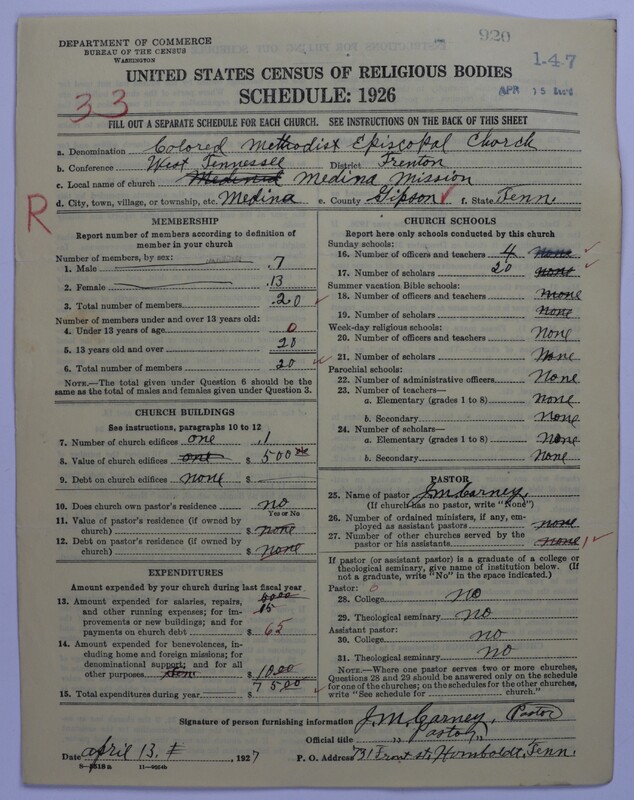 DEPARTMENT OF COMMERCE
BUREAU OF THE CENSUS
WASHINGTON
920
1-47
APR 15
UNITED STATES CENSUS OF RELIGIOUS BODIES
SCHEDULE: 1926
33
FILL OUT A SEPARATE SCHEDULE FOR EACH CHURCH. SEE INSTRUCTIONS ON THE BACK OF THIS SHEET
a. Denomination Colored Methodist Episcopal Church
b. Conference West Tennessee District Trenton
c. Local name of church Medina Mission
d. City, town, village, or township, etc. Medina e. County Gipson ✓ f. State Tenn.
R
MEMBERSHIP
Report number of members according to definition of member in your church
Number of members, by sex:
1. Male 7
2. Female 13
3. Total number of members 20 ✓
Number of members under and over 13 years old:
4. Under 13 years of age 0
5. 13 years old and over 20
6. Total number of members 20 ✓
NOTE.—The total given under Question 6 should be the same as the total of males and females given under Question 3.
CHURCH BUILDINGS
See instructions, paragraphs 10 to 12
7. Number of church edifices one 1
8. Value of church edifices one $ 500
9. Debt on church edifices none $
10. Does church own pastor's residence? no
Yes or No
11. Value of pastor's residence (if owned by church) $ none
12. Debt on pastor's residence (if owned by church) $ none
EXPENDITURES
Amount expended by your church during last fiscal year
13. Amount expended for salaries, repairs, and other running expenses; for improvements or new buildings; and for payments on church debt $ 65
14. Amount expended for benevolences, including home and foreign missions; for denominational support; and for all other purposes $ 10.00
15. Total expenditures during year $ 75.00 ✓
CHURCH SCHOOLS
Report here only schools conducted by this church
Sunday schools:
16. Number of officers and teachers 4 none ✓
17. Number of scholars 20 none ✓
Summer vacation Bible schools:
18. Number of officers and teachers none
19. Number of scholars none
Week-day religious schools:
20. Number of officers and teachers None
21. Number of scholars None
Parochial schools:
22. Number of administrative officers None
23. Number of teachers—
a. Elementary (grades 1 to 8) none
b. Secondary None
24. Number of scholars—
a. Elementary (grades 1 to 8) None
b. Secondary None
PASTOR
25. Name of pastor J. M. Carney,
(If church has no pastor, write "None")
26. Number of ordained ministers, if any, employed as assistant pastors none
27. Number of other churches served by the pastor or his assistants none 1 ✓
If pastor (or assistant pastor) is a graduate of a college or theological seminary, give name of institution below. (If not a graduate, write "No" in the space indicated.)
Pastor: 0
28. College no
29. Theological seminary no
Assistant pastor:
30. College no
31. Theological seminary no
NOTE.—Where one pastor serves two or more churches, Questions 28 and 29 should be answered only on the schedule for one of the churches; on the schedules for the other churches, write "See schedule for church."
Signature of person furnishing information J. M. Carney, Pastor
Official title " Pastor "
Date april 13. 1927 P. O. Address 731 Front st. Homboldt, Tenn.
8-5518a 11-9504b